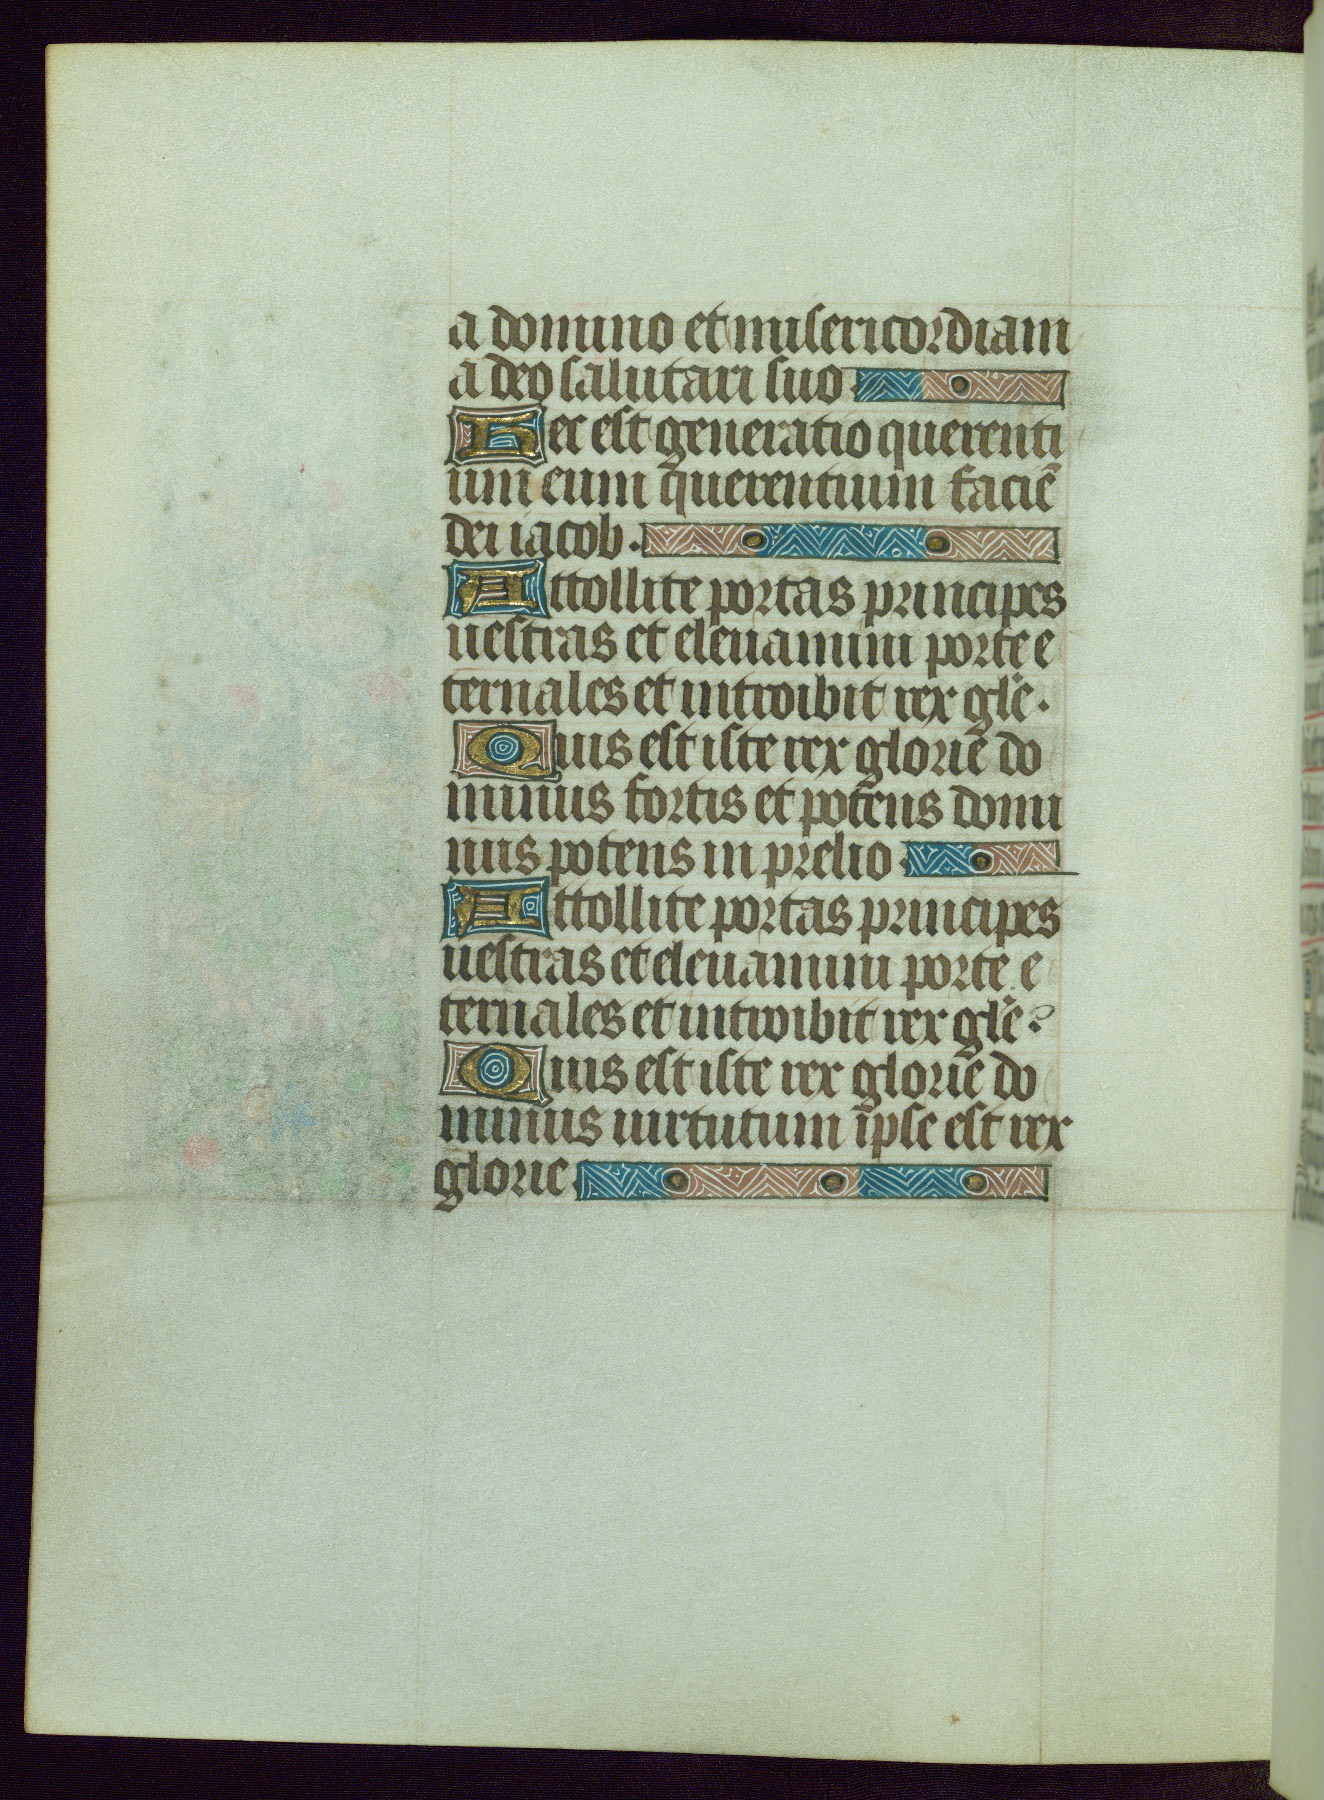 a domino et misericordiam
a deo salutari suo
Hec est generatio querenti
um eum querentium faciē
dei iacob.
Attollite portas principes
uestras et eleuamini porte e
ternales et introibit rex gl̄e.
Quis est iste rex glorie do
minus fortis et potens domi
nus potens in prelio
Attollite portas principes
uestras et eleuamini porte e
ternales et introibit rex gl̄e?
Quis est iste rex glorie do
minus uirtutum ipse est rex
glorie